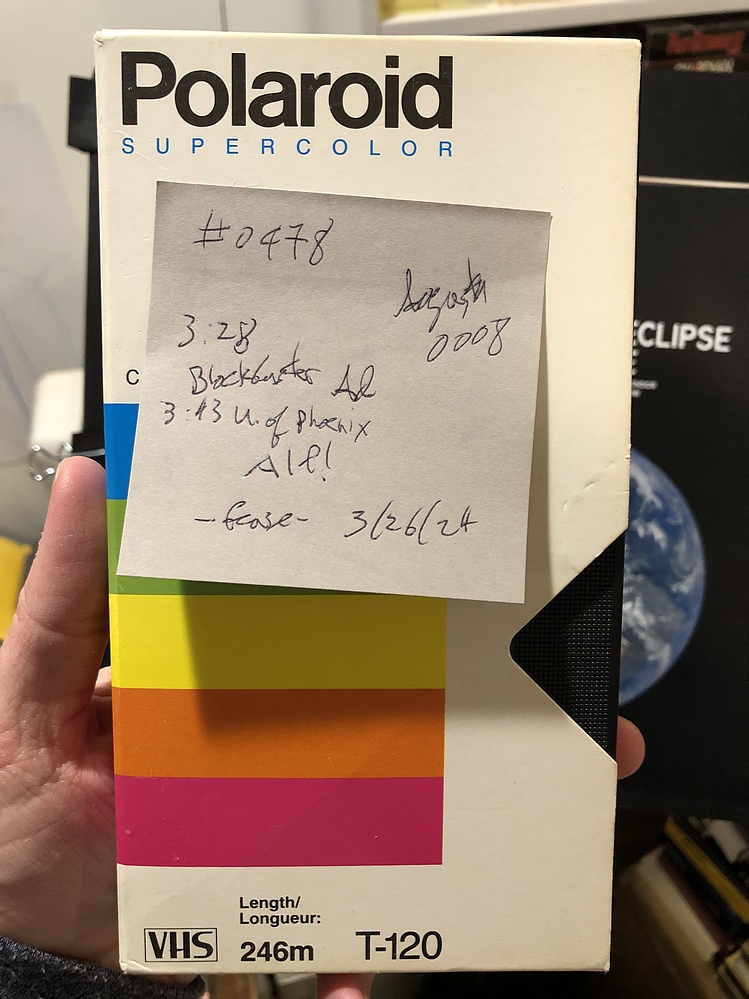 Polaroid
SUPERCOLOR
#0478
Augusta
0008
3:28
Blockbuster Ad
3:43 U. of Phoenix
Alf!
3/26/24
C
ECLIPSE
Length/
Longueur:
VHS 246m T-120